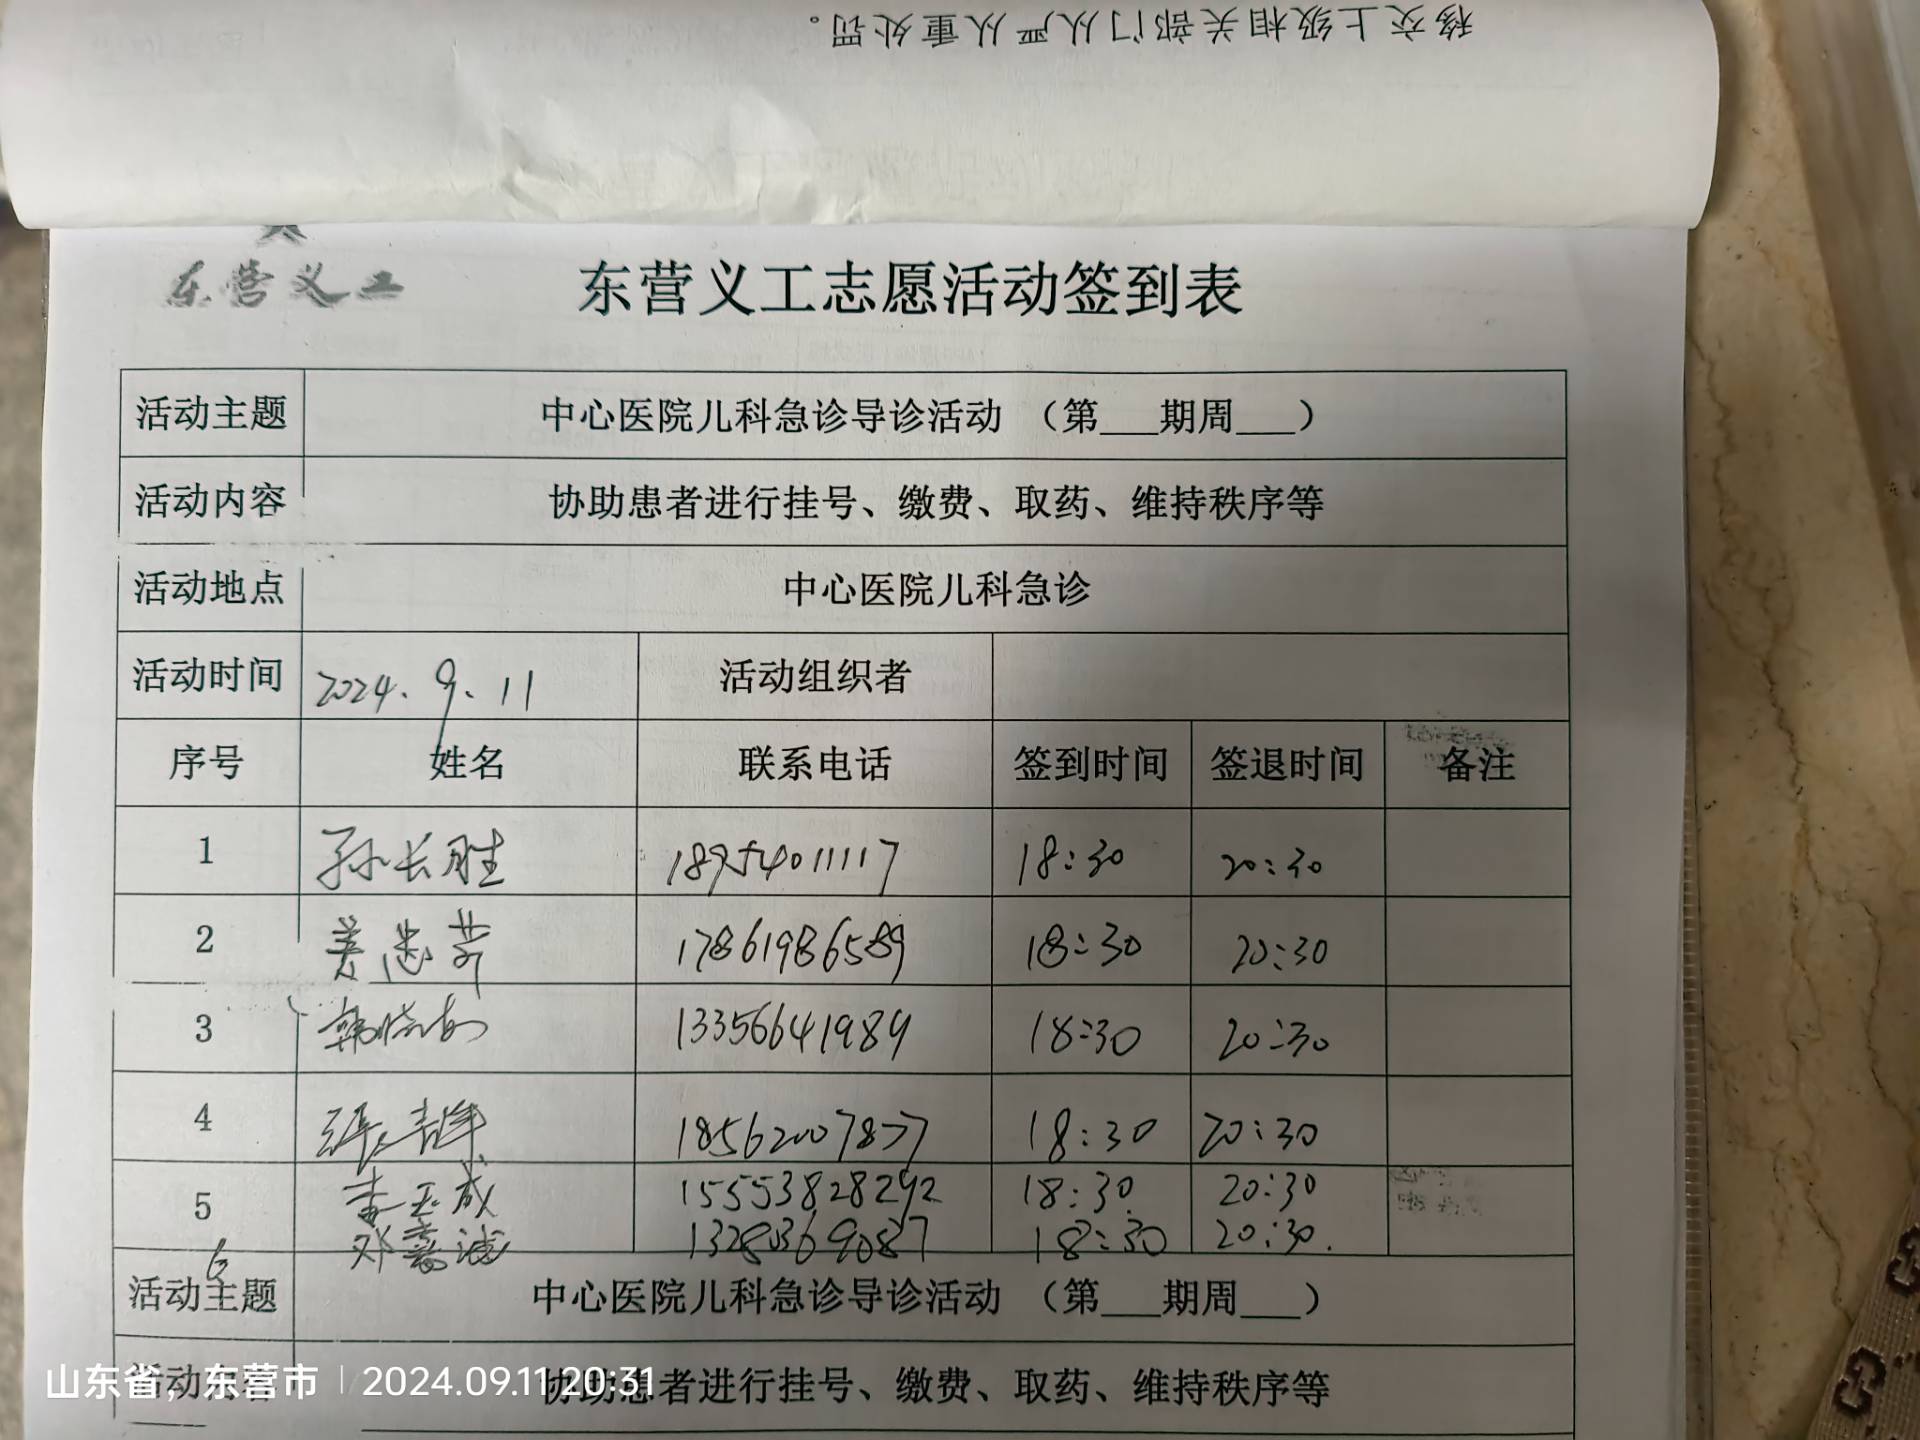 移交上级相关部门从严从重处罚。
东营义工
东营义工志愿活动签到表
活动主题 中心医院儿科急诊导诊活动 （第___期周___）
活动内容 协助患者进行挂号、缴费、取药、维持秩序等
活动地点 中心医院儿科急诊
活动时间 2024.9.11 活动组织者
序号 姓名 联系电话 签到时间 签退时间 备注
1 孙长胜 18954011117 18:30 20:30
2 17861986589 18:30 20:30
3 韩晓 13356641989 18:30 20:30
4 张 18562007877 18:30 20:30
5 李玉成 15553828292 18:30 20:30
6 邓 诚 13280369087 18:30 20:30.
活动主题 中心医院儿科急诊导诊活动 （第___期周___）
活动内容 协助患者进行挂号、缴费、取药、维持秩序等
山东省，东营市 2024.09.11 20:31